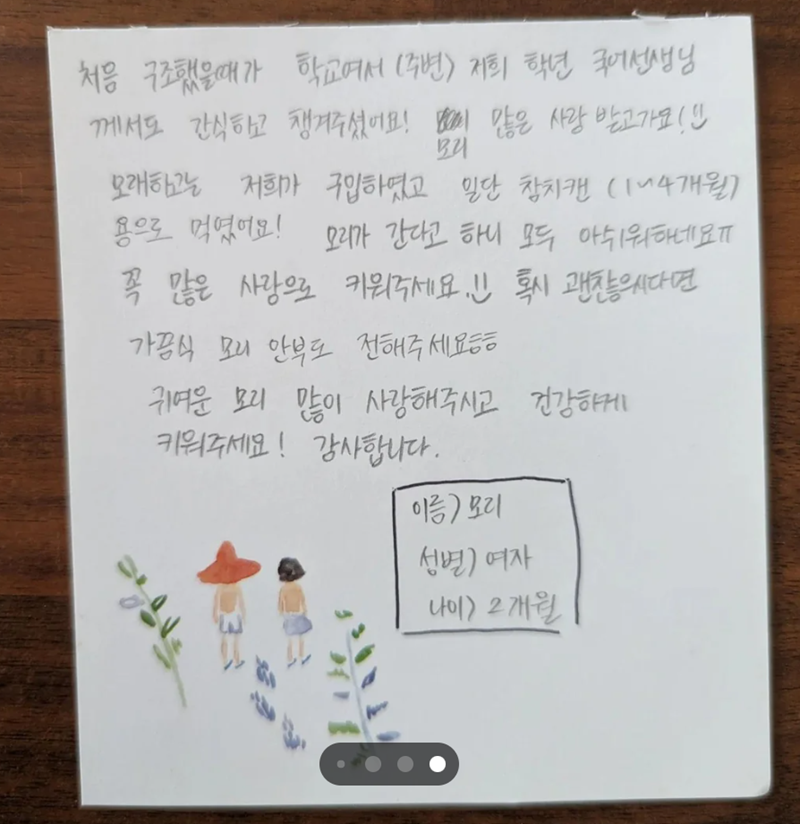 처음 구조했을때가 학교여서 (주변) 저희 학년 국어선생님
께서도 간식하고 챙겨주셨어요! 모리 많은 사랑 받고가요!
모래하고는 저희가 구입하였고 일단 참치캔 (1~4개월)
용으로 먹였어요! 모리가 간다고 하니 모두 아쉬워하네요ㅠ
꼭 많은 사랑으로 키워주세요. 혹시 괜찮으시다면
가끔식 모리 안부도 전해주세요ㅎㅎ
귀여운 모리 많이 사랑해주시고 건강하게
키워주세요! 감사합니다.
이름) 모리
성별) 여자
나이) 2개월